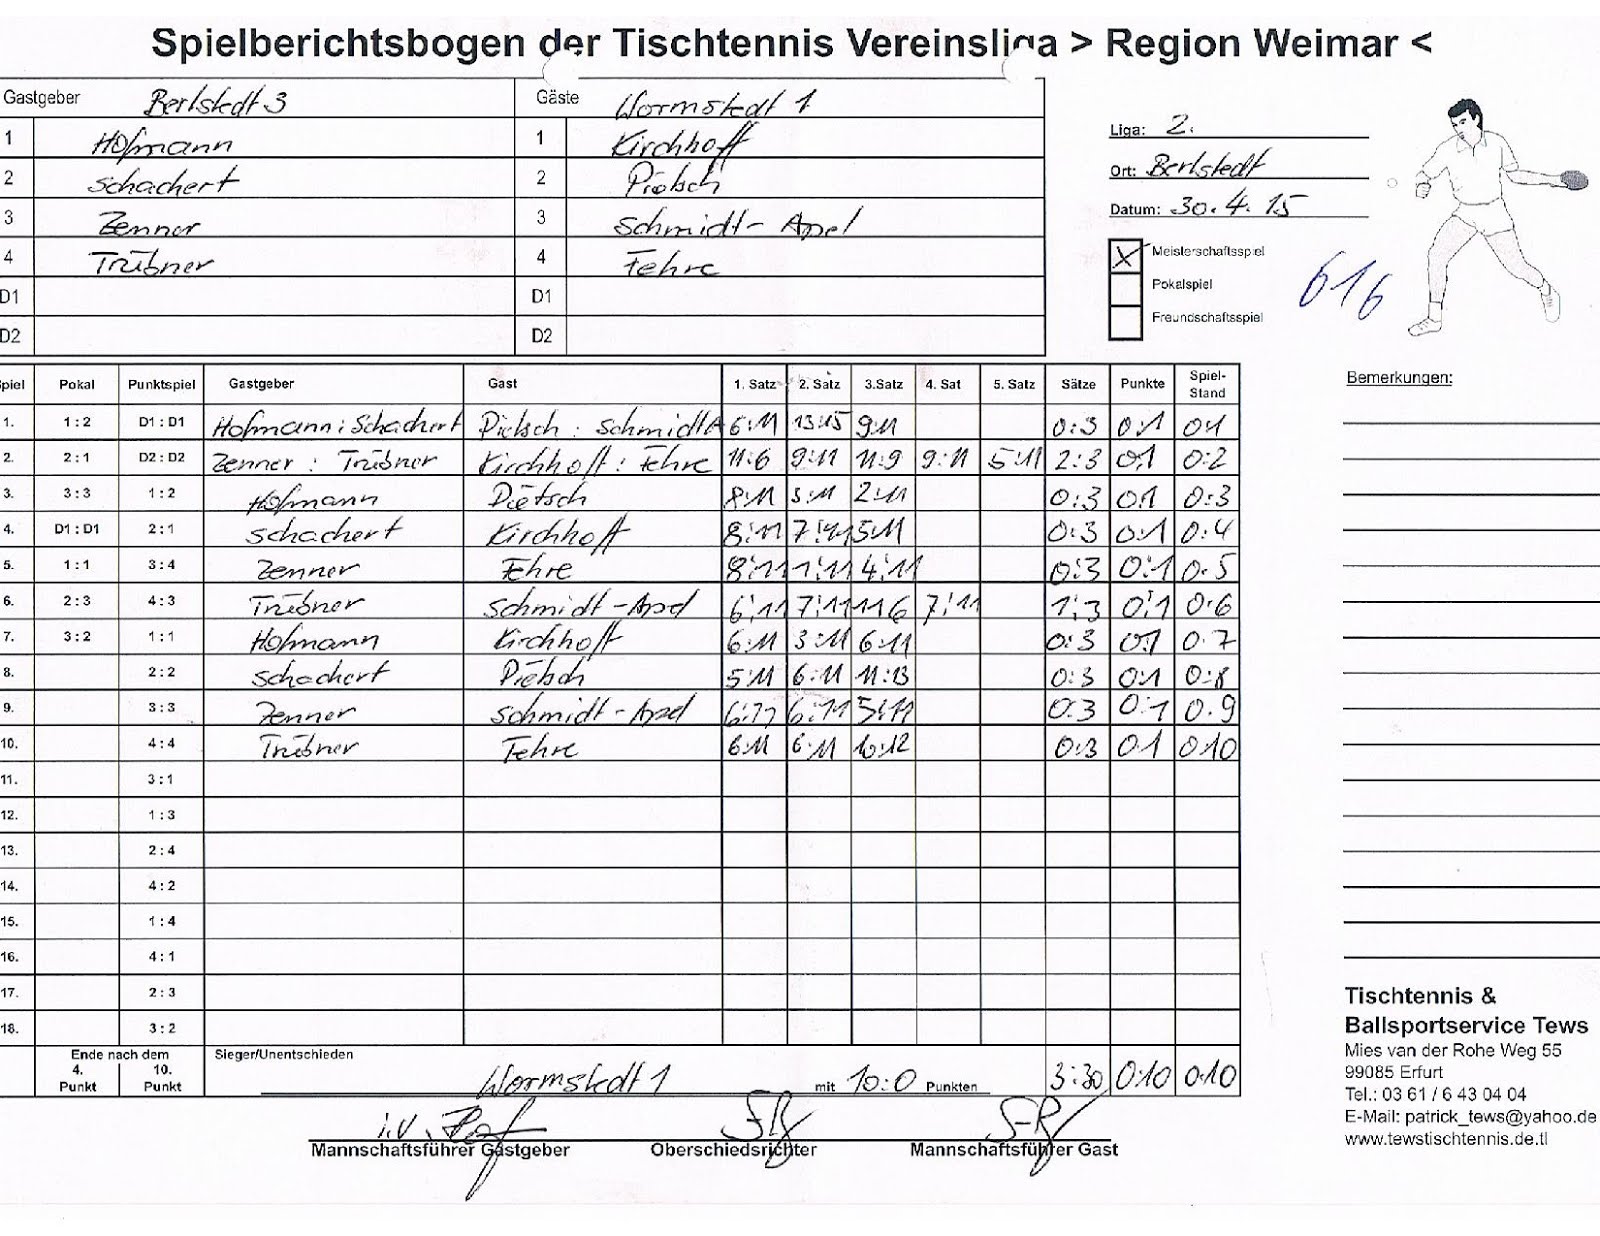 Spielberichtsbogen der Tischtennis Vereinsliga > Region Weimar <
Gastgeber Berlstedt 3 Gäste Wormstedt 1
1 Hofmann 1 Kirchhoff
2 Schachert 2 Pietsch
3 Zenner 3 Schmidt-Apel
4 Trübner 4 Fehre
D1 D1
D2 D2
Liga: 2.
Ort: Berlstedt
Datum: 30.4.15
X Meisterschaftsspiel
Pokalspiel
Freundschaftsspiel
616
piel Pokal Punktspiel Gastgeber Gast 1. Satz 2. Satz 3.Satz 4. Sat 5. Satz Sätze Punkte Spiel-Stand
1. 1 : 2 D1 : D1 Hofmann : Schachert Pietsch : Schmidt A 6:11 13:15 9:11 0:3 0:1 0:1
2. 2 : 1 D2 : D2 Zenner : Trübner Kirchhoff : Fehre 11:6 9:11 11:9 9:11 5:11 2:3 0:1 0:2
3. 3 : 3 1 : 2 Hofmann Pietsch 8:11 3:11 2:11 0:3 0:1 0:3
4. D1 : D1 2 : 1 Schachert Kirchhoff 8:11 7:11 5:11 0:3 0:1 0:4
5. 1 : 1 3 : 4 Zenner Fehre 8:11 1:11 4:11 0:3 0:1 0:5
6. 2 : 3 4 : 3 Trübner Schmidt-Apel 6:11 7:11 11:6 7:11 1:3 0:1 0:6
7. 3 : 2 1 : 1 Hofmann Kirchhoff 6:11 3:11 6:11 0:3 0:1 0:7
8. 2 : 2 Schachert Pietsch 5:11 6:11 11:13 0:3 0:1 0:8
9. 3 : 3 Zenner Schmidt-Apel 6:11 6:11 5:11 0:3 0:1 0:9
10. 4 : 4 Trübner Fehre 6:11 6:11 10:12 0:3 0:1 0:10
11. 3 : 1
12. 1 : 3
13. 2 : 4
14. 4 : 2
15. 1 : 4
16. 4 : 1
17. 2 : 3
18. 3 : 2
Ende nach dem 4. Punkt 10. Punkt Sieger/Unentschieden Wormstedt 1 mit 10:0 Punkten 3:30 0:10 0:10
i.V.
Mannschaftsführer Gastgeber Oberschiedsrichter Mannschaftsführer Gast
Bemerkungen:
Tischtennis &
Ballsportservice Tews
Mies van der Rohe Weg 55
99085 Erfurt
Tel.: 03 61 / 6 43 04 04
E-Mail: patrick_tews@yahoo.de
www.tewstischtennis.de.tl